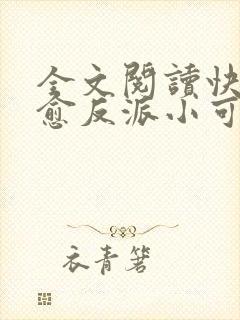 全文閱讀快
愈反派小可
衣青箬